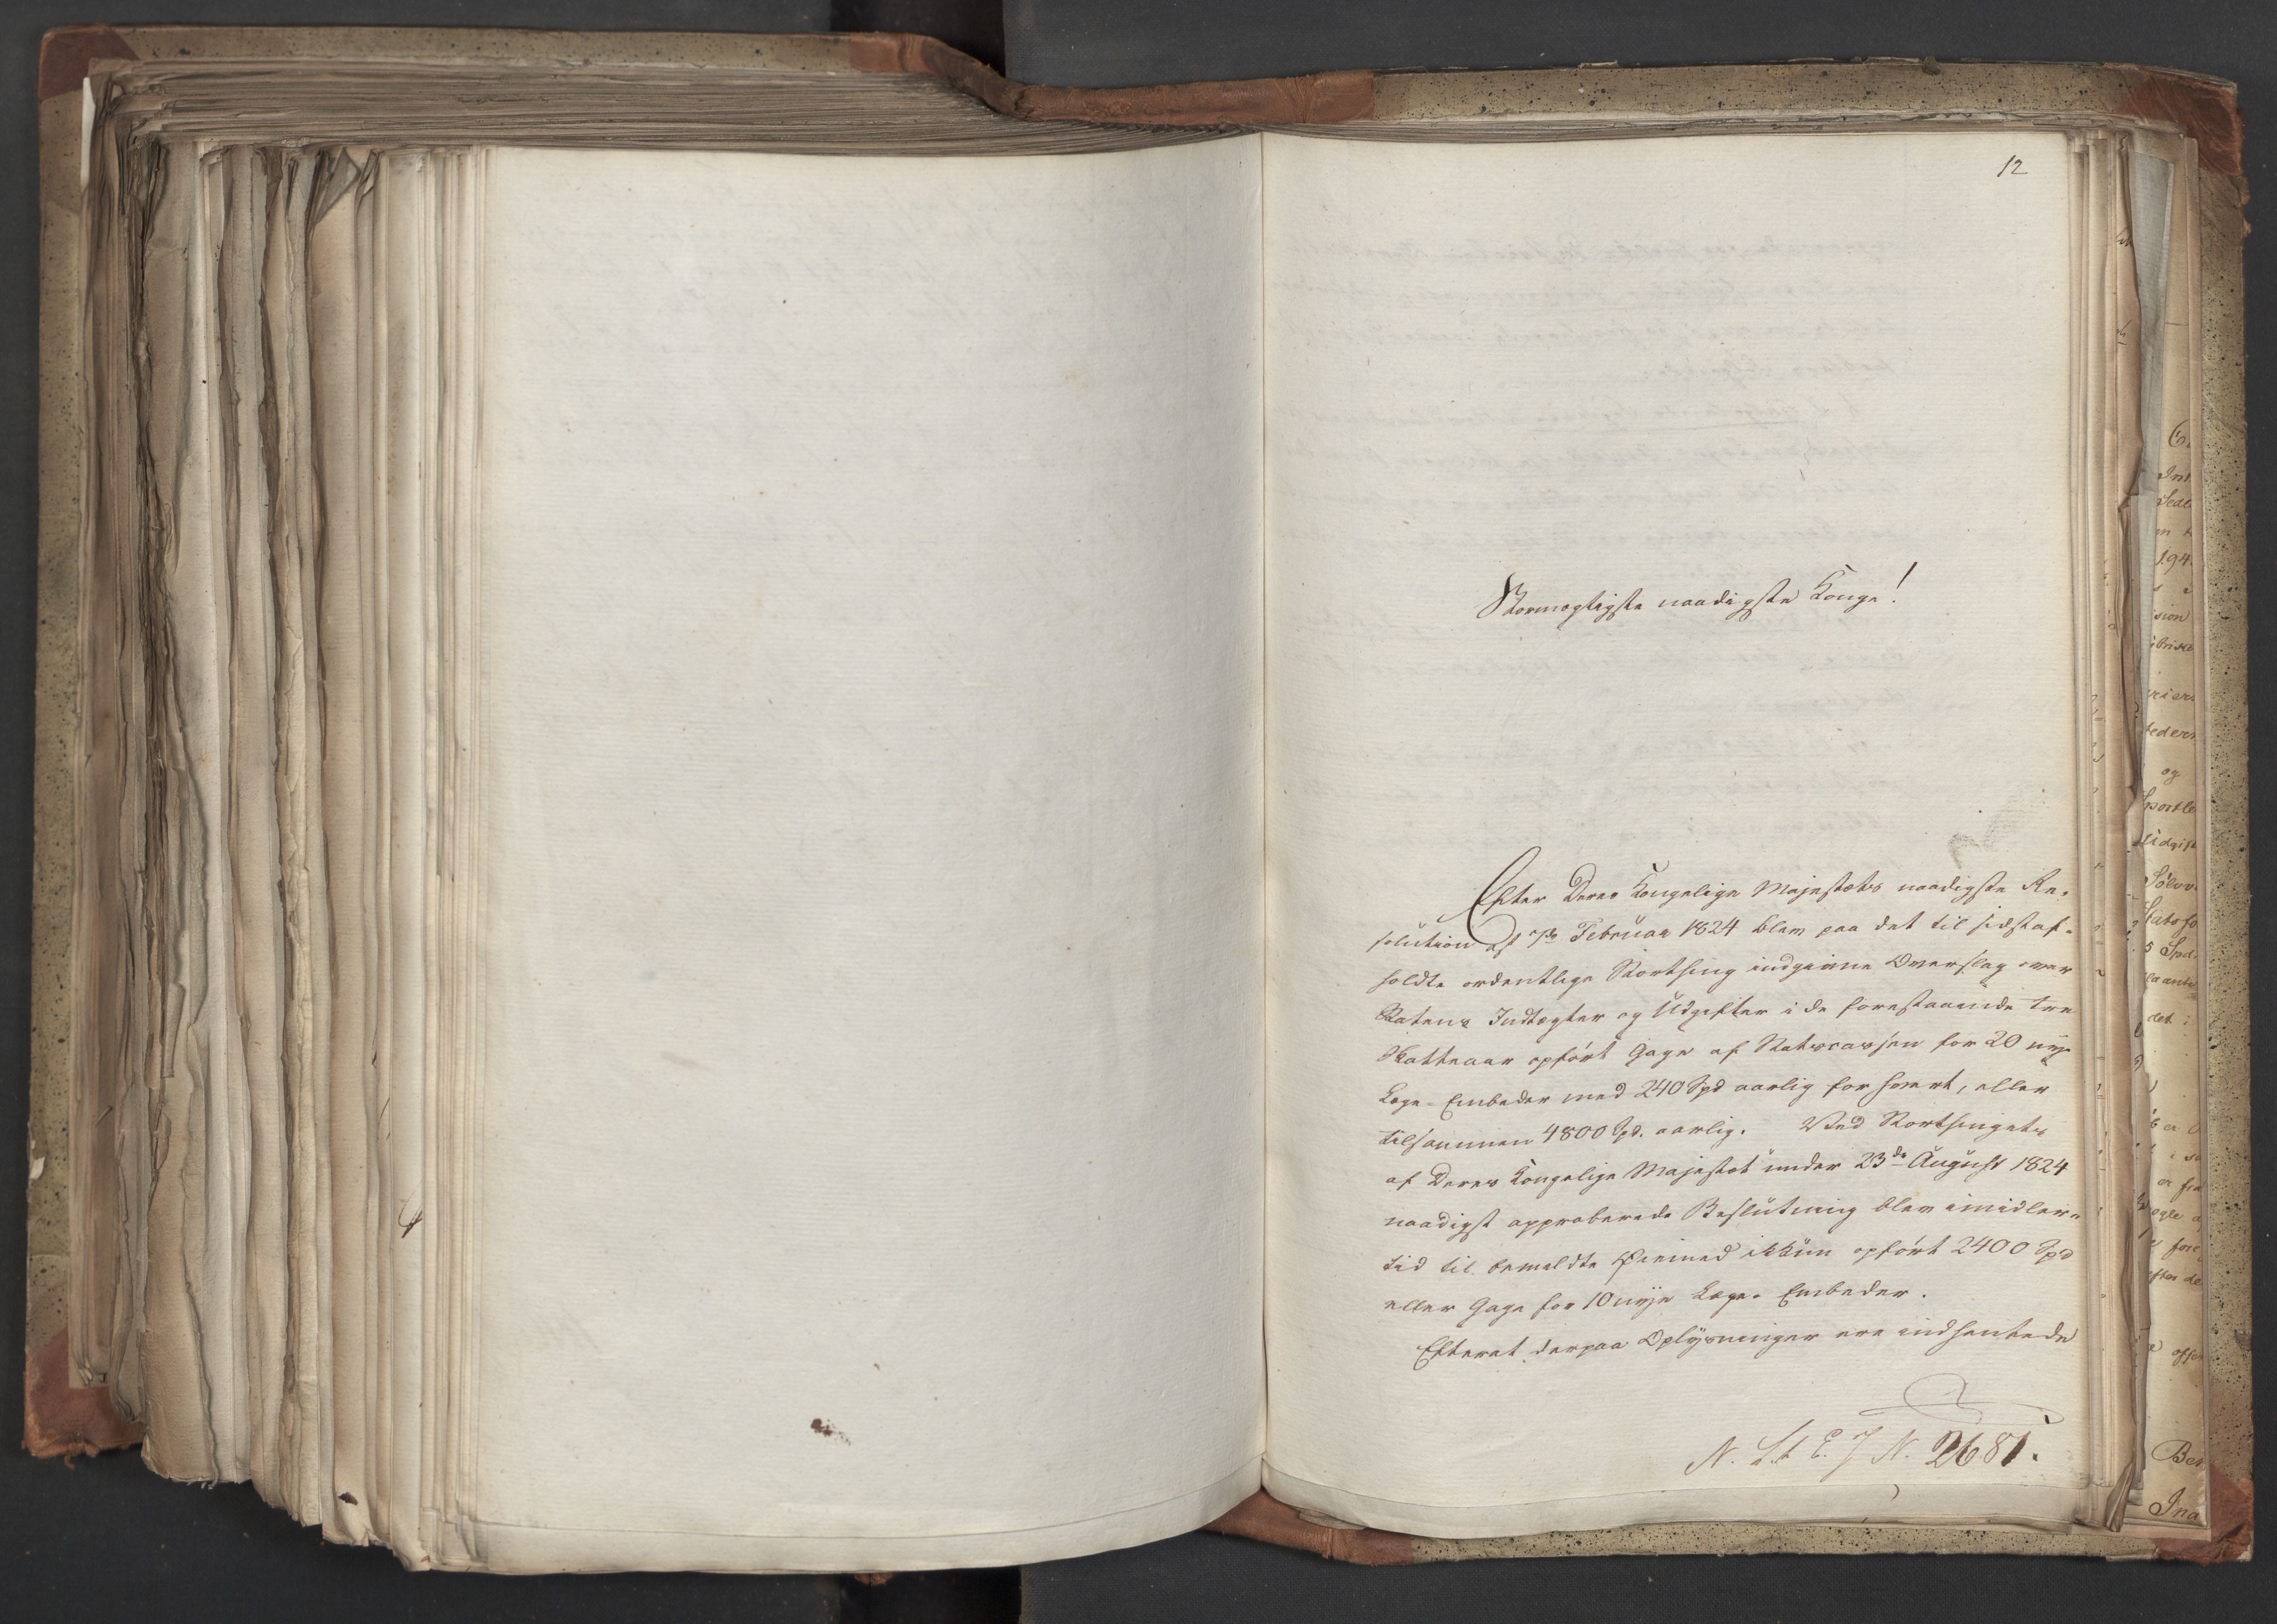 12
Stormægtigste naadigste Konge!
Efter Deres Kongelige Majestæts naadigste Re-
solution af 7de Februar 1824 blev paa det til sidstaf-
holdte ordentlige Storthing indgivne Overslag over
Statens Indtægter og Udgifter i de forestaaende tre
Skatteaar opført Gage af Statscassen for 20 nye
Læge-Embeder med 240 Spd aarlig for hvert, eller
tilsammen 4800 Spd. aarlig. Ved Storthingets
af Deres Kongelige Majestæt under 23de August 1824
naadigst approberede Beslutning blev imidler-
tid til bemeldte Øiemed ikkun opført 2400 Spd
eller Gage for 10 nye Læge-Embeder.
Efterat derpaa Oplysninger ere indhentede
N. St. E. J N. 2681.
Int
194
sion
og
det
Ina